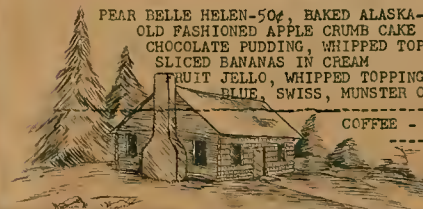 PEAR BELLE HELEN-50¢, BAKED ALASKA-
OLD FASHIONED APPLE CRUMB CAKE
CHOCOLATE PUDDING, WHIPPED TOP
SLICED BANANAS IN CREAM
FRUIT JELLO, WHIPPED TOPPING
BLUE, SWISS, MUNSTER C
COFFEE -